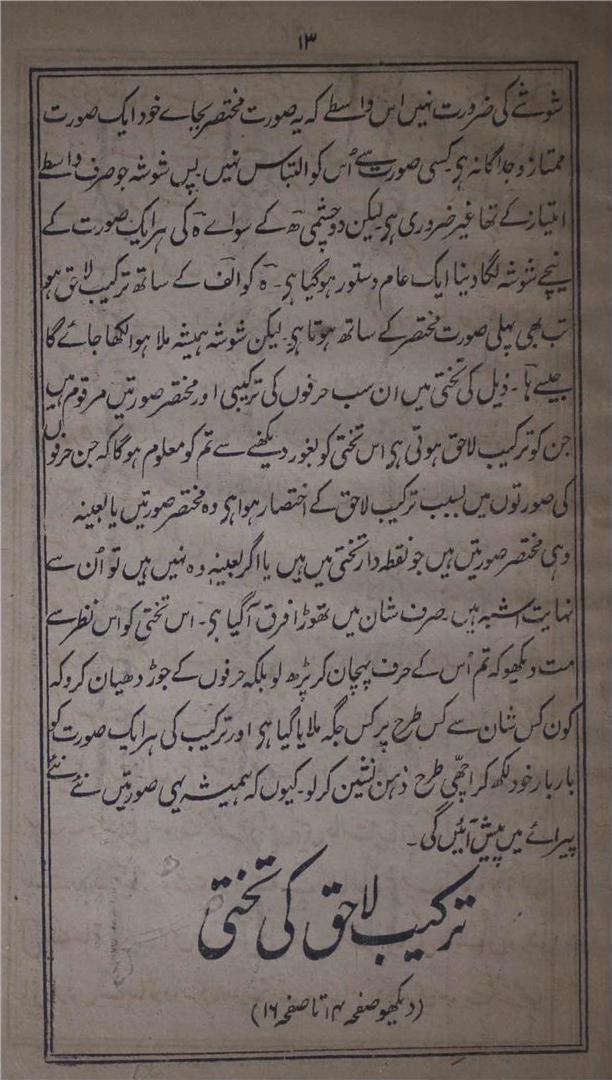 ۱۳
شوشے کی ضرورت نہیں اس واسطے کہ یہ صورت مختصر بجاے خود ایک صورت
ممتاز و جداگانہ ہی کسی صورت سے اُس کو التباس نہیں پس شوشہ جو صرف واسطے
امتیاز کے تھا غیر ضروری ہی لیکن دوچشمی ھ کے سواے ہ کی ہر ایک صورت کے
نیچے شوشہ لگا دینا ایک عام دستور ہو گیا ہی۔ ہ کو الف کے ساتھ ترکیب لاحق ہو
تب بھی پہلی صورت مختصر کے ساتھ ہوتا ہی لیکن شوشہ ہمیشہ ملا ہوا لکھا جائے گا
جیسے ہا۔ ذیل کی تختی میں ان سب حرفوں کی ترکیبی اور مختصر صورتیں مرقوم ہیں
جن کو ترکیب لاحق ہوتی ہی اس تختی کو بغور دیکھنے سے تم کو معلوم ہوگا کہ جن حرفوں
کی صورتوں میں بسبب ترکیب لاحق کے اختصار ہوا ہی وہ مختصر صورتیں یا بعینہ
وہی مختصر صورتیں ہیں جو نقطہ دار تختی میں ہیں یا اگر بعینہ وہ نہیں ہیں تو اُن سے
نہایت اشبہ ہیں۔ صرف شان میں تھوڑا فرق آگیا ہی۔ اس تختی کو اس نظر سے
مت دیکھو کہ تم اُس کے حرف پہچان کر پڑھ لو بلکہ حرفوں کے جوڑ دھیان کرو کہ
کون کس شان سے کس طرح پر کس جگہ ملایا گیا ہی اور ترکیب کی ہر ایک صورت کو
بار بار خود لکھ کر اچھی طرح ذہن نشین کر لو۔ کیوں کہ ہمیشہ یہی صورتیں نئے نئے
پیرائے میں پیش آئیں گی۔
ترکیب لاحق کی تختی
(دیکھو صفحہ ۱۴ تا صفحہ ۱۶)